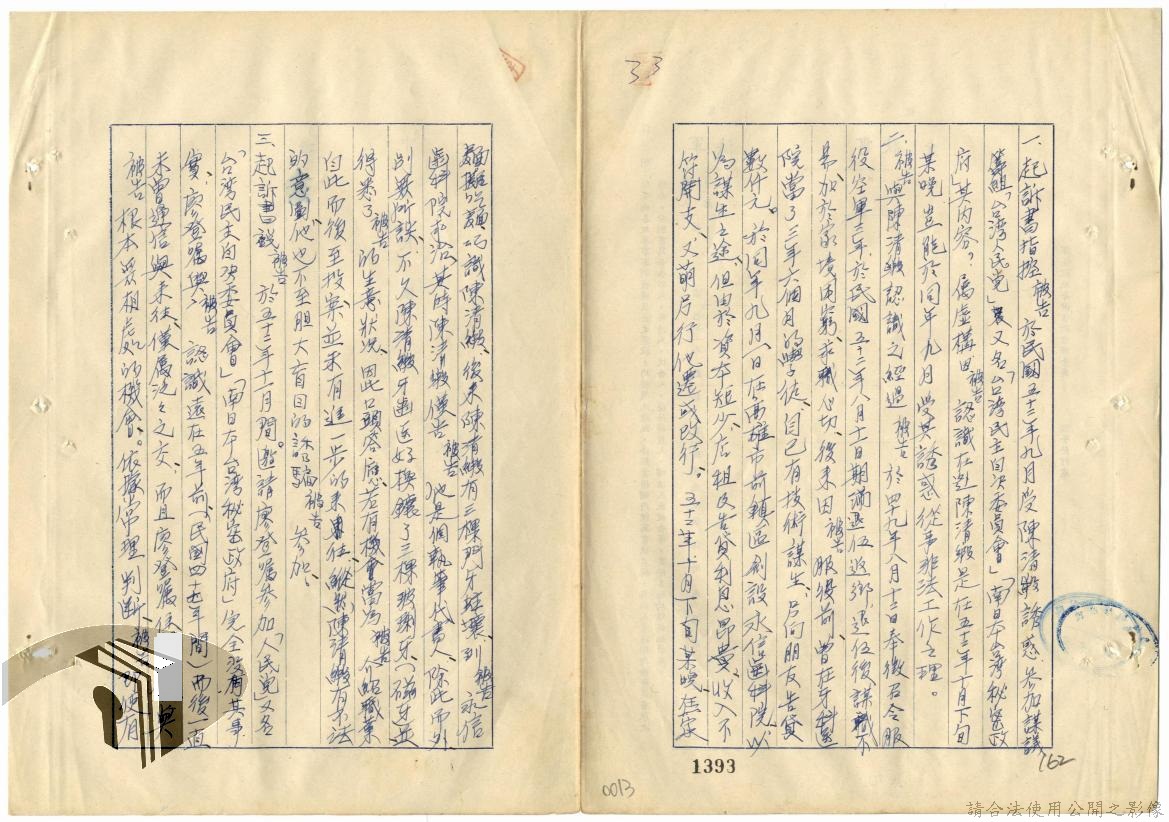 33
一、起訴書指控被告於民國五十三年九月受陳清緞誘惑參加謀議
籌組「台湾人民党」又名「台湾民主自决委員會」「南日本台湾秘密政
府」其內容?屬虛構。因被告認識在逃陳清緞是在五十三年十月下旬
某晚豈能於同年九月受其誘惑從事非法工作之理。
二、被告與陳清緞認識之經過被告於四十九年八月十三日奉徵召令服
役空軍三年、於民國五十二年八月十日期滿退伍返鄉。退伍後謀職不
易、加於家境困窮、求職心切、後來因被告服役前曾在牙科醫
院當了三年六個月的學徒、自己有技術謀生、乃向朋友告貸
数仟元。於同年九月一日在高雄市前鎮區創設永信齒科院、以
為謀生之途、但由於資本短少、店租及告貸利息昂貴、收入不
符開支、又萌另行他遷或改行。五十三年十月下旬某晚在家
1393
162
麵攤吃麵的識陳清緞、後來陳清緞有三棵門牙蛀壞、到被告永信
齒科院求治其時陳清緞僅告被告他是個執筆代書人、除此而外
別無所談、不久陳清緞牙齒医好換鑲了三棵玻璃牙(磁牙)並
得悉了被告的生意狀況、因此口頭答應若有機會當為被告介紹職業
自此而後至投案並未有進一步的來往、縱然陳清緞有不法
的意圖他也不至胆大盲目的誘騙被告參加。
三、起訴書說被告於五十三年十一月間邀請廖登囑參加「人民党」又名
「台湾民主自决委員會」「南日本台湾秘密政府」完全沒有其事
實、廖登囑與被告認識遠在五年前(民國四十七年間)而後一直
未曾連信與來往、僅屬泛泛之交、而且廖登囑係
被告根本無相處的機會。依據常理判斷、被告即使有
與
0013
請合法使用公開之影像